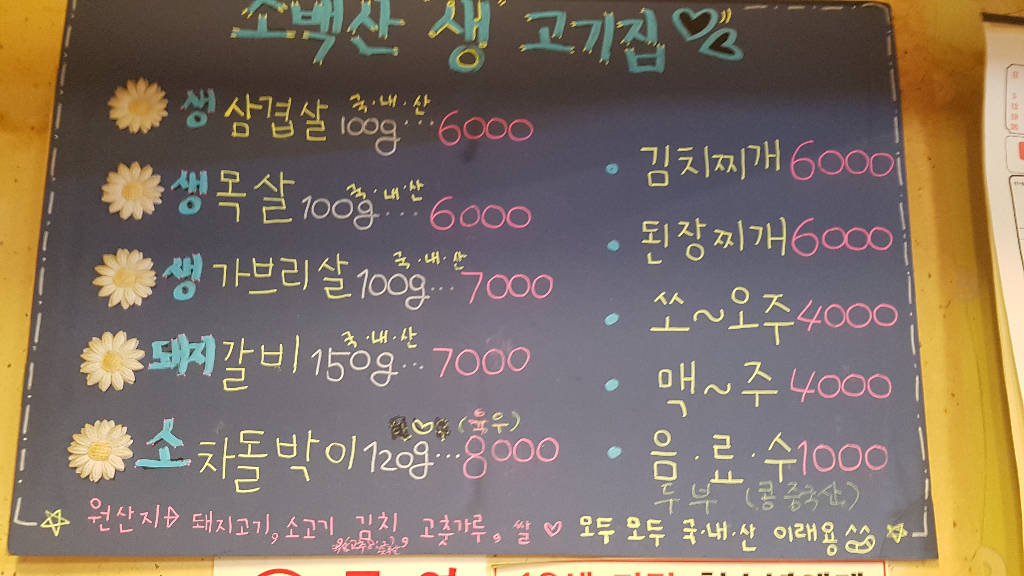 소백산 "생" 고기집
생 삼겹살 국·내·산 100g··· 6000
생 목살 국·내·산 100g··· 6000
생 가브리살 국·내·산 100g··· 7000
돼지 갈비 국·내·산 150g··· 7000
소 차돌박이 (육우) 120g··· 8000
· 김치찌개 6000
· 된장찌개 6000
· 쏘~오주 4000
· 맥~주 4000
· 음·료·수 1000
두부 (콩 중국산)
원산지▷ 돼지고기, 소고기 김치, 고춧가루, 쌀 ♡ 모두 모두 국·내·산 이래용^^